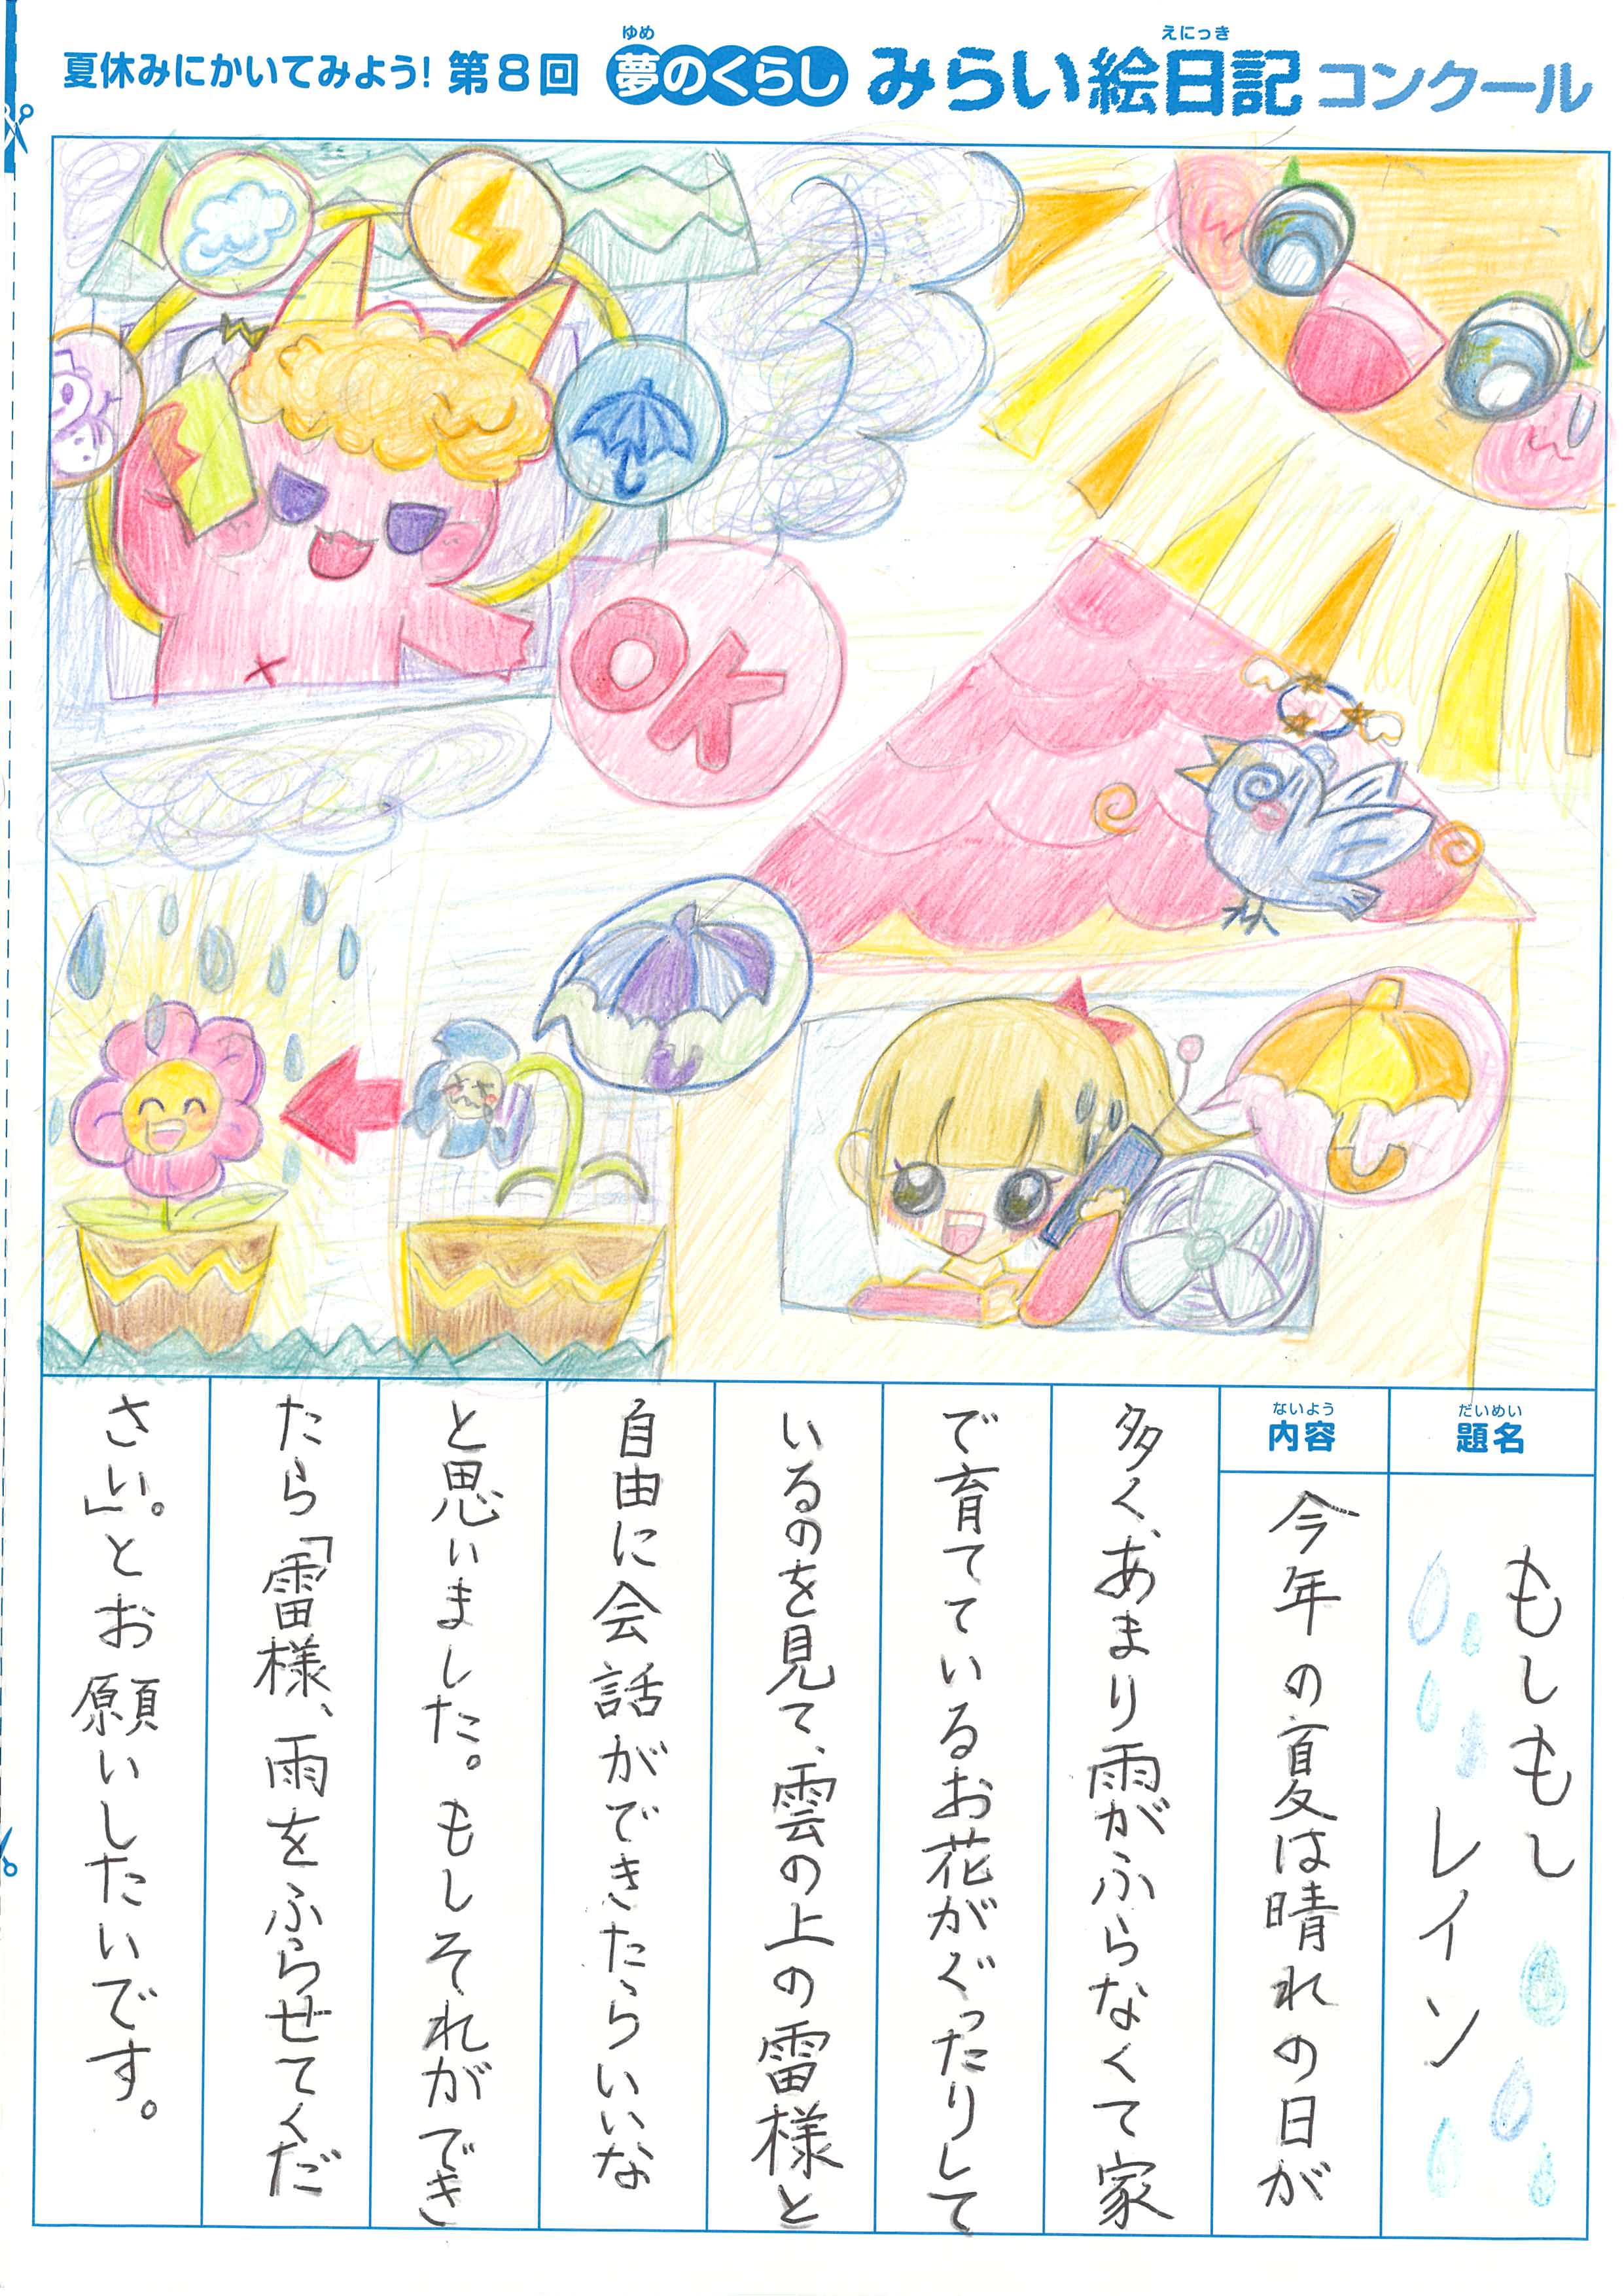 夏休みにかいてみよう！第8回 夢のくらし みらい絵日記コンクール
ゆめ
えにっき
OK
だいめい
題名
もしもし
レイン
ないよう
内容
今年の夏は晴れの日が
多く、あまり雨がふらなくて家
で育てているお花がぐったりして
いるのを見て、雲の上の雷様と
自由に会話ができたらいいな
と思いました。もしそれができ
たら「雷様、雨をふらせてくだ
さい」。とお願いしたいです。